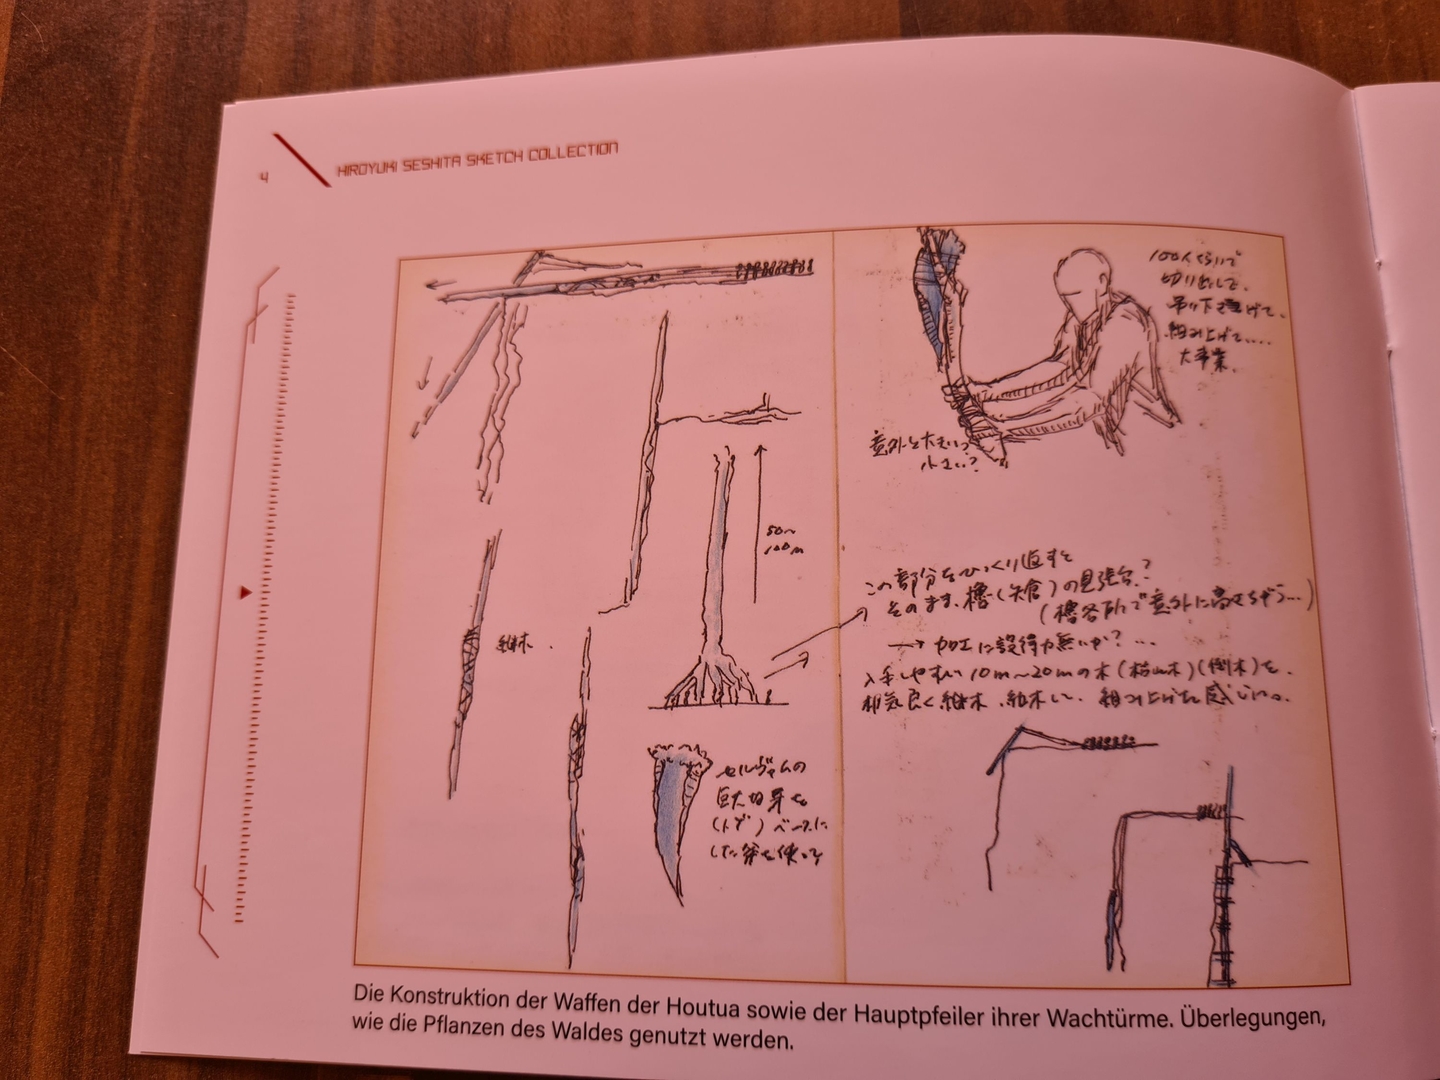 4
HIROYUKI SESHITA SKETCH COLLECTION
100人くらいで
切り出して、
吊り下げて、
組み上げて....
大事業。
意外と大きいっ
小さい?
50~
100m
継木
この部分をひっくり返すと
そのまま、櫓(矢倉)の見張台?
(櫓各所で意外に高さちがう...)
→ 加工に説得力無いか?...
入手しやすい10m~20mの木(倒木)を、
根気良く継木、組み上げた感じに。
セルヴァムの
巨大な牙を
(トゲ)ベースに
した斧を使って
Die Konstruktion der Waffen der Houtua sowie der Hauptpfeiler ihrer Wachtürme. Überlegungen,
wie die Pflanzen des Waldes genutzt werden.